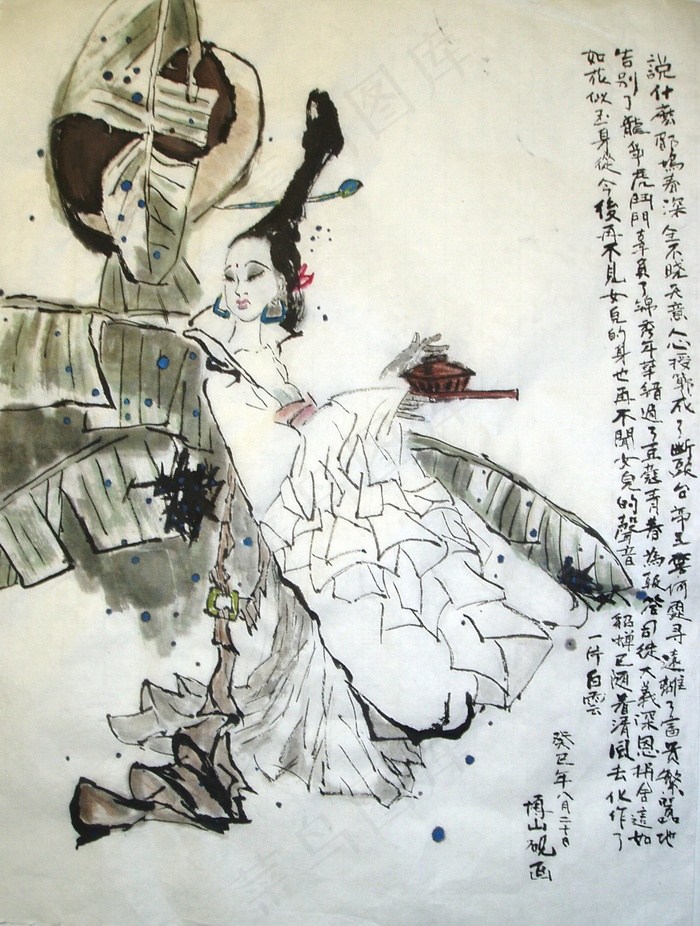 說什麼郿塢春深全不曉天意心授戰成了斷頭台帝王業何處尋遠離了富貴繁囂地
告別了龍爭虎鬥門辜負了錦秀年華錯過了豆蔻青春為報答司徒大義深恩捐舍這如
如花似玉身從今後再不見女兒的身也再不聞女兒的聲音 貂蟬已隨著清風去化作了
一片白雲
癸巳年八月二十日
博山硯画